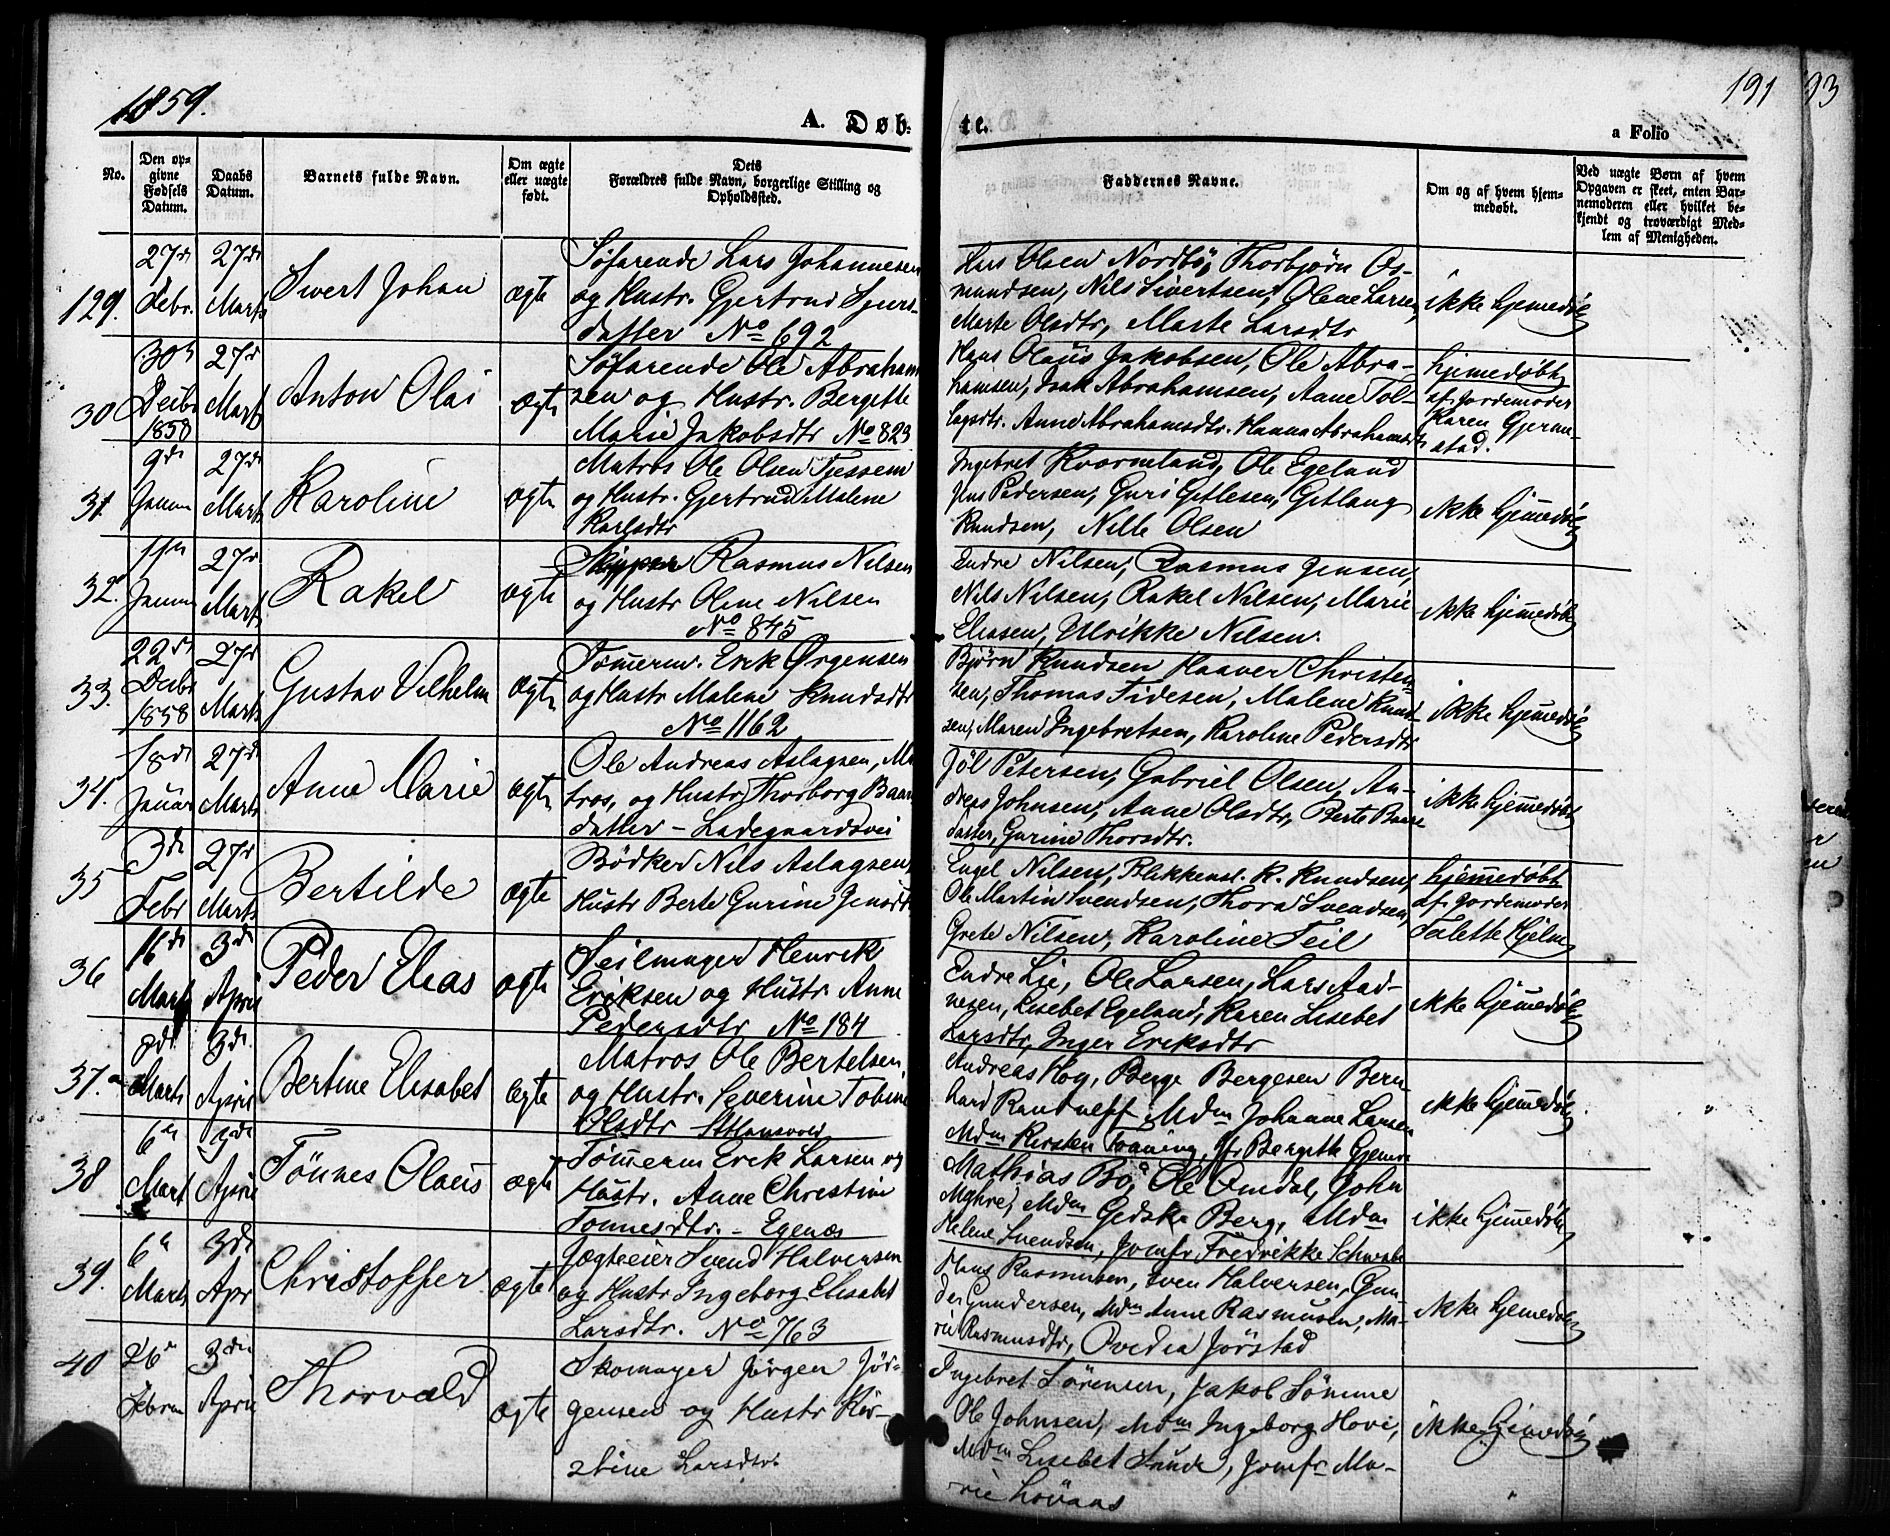 1859.
191
93
A. Døb-
te.
a Folio
No.
Den op-
givne
Fødsels
Datum.
Daabs
Datum.
Barnets fulde Navn.
Om ægte
eller uægte
født.
Dets
Forældres fulde Navn, borgerlige Stilling og
Opholdssted.
Faddernes Navne.
Om og af hvem hjem-
medøbt.
Ved uægte Børn af hvem
Opgaven er skeet, enten Bar-
nemoderen eller hvilket be-
kjendt og troværdigt Med-
lem af Menigheden.
129.
27de
Febr.
27de
Marts
Sivert Johan
ægte
Søfarende Lars Johannesen
og Hustr. Gjertrud Sjurs-
datter No 692
Lars Olsen Nordbö, Thorbjørn Os-
mundsen, Nils Sivertsen, Olene Larsen,
Marte Olsdtr, Marte Larsdtr
ikke hjemedøbt
30
30te
Decbr
1858
27de
Marts
Anton Olai
ægte
Søfarende Ole Abraham
sen og Hustr. Bergitte
Marie Jakobsdtr No 823
Hans Olaüs Jakobsen, Ole Abra-
hamsen, Isak Abrahamsen, Anne Tol-
lagsdtr. Anne Abrahamsdtr. Hanna Abrahamsdtr
hjemedøbt
af Jordemoder
Karen Gjerm-
stad.
31.
9de
Januar
27de
Marts
Karoline
ægte
Matros Ole Olsen Tjessem
og Hustr. Gjertrud Malene
Karlsdtr
Ingebret Kvormland, Ole Egeland
Jens Pedersen, Guri Gitlesen, Gitlaug
Knudsen, Nille Olsen
ikke hjemedøbt
32.
11te
Januar
27de
Marts
Rakel
ægte
Skipper Rasmus Nilsen
og Hustr Olene Nilsen
No 845
Endre Nilsen, Rasmus Jensen,
Nils Nilsen, Rakel Nilsen, Marie
Eliasen, Ulrikke Nilsen.
ikke hjemedøbt
33.
22de
Decbr
1858
27de
Marts
Gustav Vilhelm
ægte
Tømerm. Erik Ørgensen
og Hustr Malene Knudsdtr
No 1162
Bjørn Knudsen Haaver Christen-
sen, Thomas Tidesen, Malene Knud-
sen, Maren Ingebretsen, Karoline Pedersdtr
ikke hjemedøbt
34.
18de
Januar
27de
Marts
Anne Marie
ægte
Ole Andreas Aslagsen, Ma
tros, og Hustr Thorborg Baar
datter – Ladegaardsvei
Jöl Petersen, Gabriel Olsen, An-
dreas Johnsen, Anne Olsdtr, Berte Baar
datter, Gurine Thorsdtr.
ikke hjemedøbt
35
3de
Febr
27de
Marts
Bertilde
ægte
Bödker Nils Aslagsen,
Hustr Berte Gurine Jensdtr
Engel Nilsen, Blikkensl. K. Knudsen,
Ole Martin Svendsen, Thora Svendsen,
Grete Nilsen, Karoline Teil
hjemedøbt
af Jordemoder
Talette Hjelm
36
16de
Marts
3de
April
Peder Elias
ægte
Seilmager Henrik
Eriksen og Hustr Anne
Pedersdtr No 184
Endre Lie, Ole Larsen, Lars Aad-
nesen, Lisebet Egeland, Karen Lisebet
Larsdtr, Inger Eriksdtr
ikke hjemedøbt
37.
8de
Marts
3de
April
Bertine Elisabet
ægte
Matros Ole Bertelsen,
og Hustr. Severine Tobine
Olsdtr
Andreas Hog, Berge Bergesen Bern
hard Randulff, Mdm Johanne Larsen
Mdm Kirsten Traning, Jfr Bergitte
ikke hjemedøbt
38
6te
Mart
3de
April
Tönnes Olaus
ægte
Tømerm Erik Larsen og
Hustr. Anne Christine
Tonnesdtr. – Egenæs
Mathias Bö, Ole Omdal, John
Myhre, Mdm Gidske Berg, Mdm
Helene Svendsen, Jomfr Fredrikke Schwabe
ikke hjemedøbt
39.
6te
Marts
3de
Apr
Christoffer
ægte
Jægteeier Svend Halversen
og Hustr Ingeborg Elisabet
Larsdtr. No 763
Hans Rasmusen, Sven Halversen, Gun-
der Gundersen, Mdm Anne Rasmusen, Ma-
rie Rasmusdtr, Ovedia Jörstad
ikke hjemedøbt
40
26de
Februar
3die
April
Thorvald
ægte
Skomager Jörgen Jör-
gensen og Hustr Kir-
stine Larsdtr.
Ingebret Sörensen, Jakob Sömme
Ole Johnsen, Mdm Ingeborg Hovi,
Mdm Lisebet Sunde, Jomfr Ma-
rie Lövaas
ikke hjemedøbt